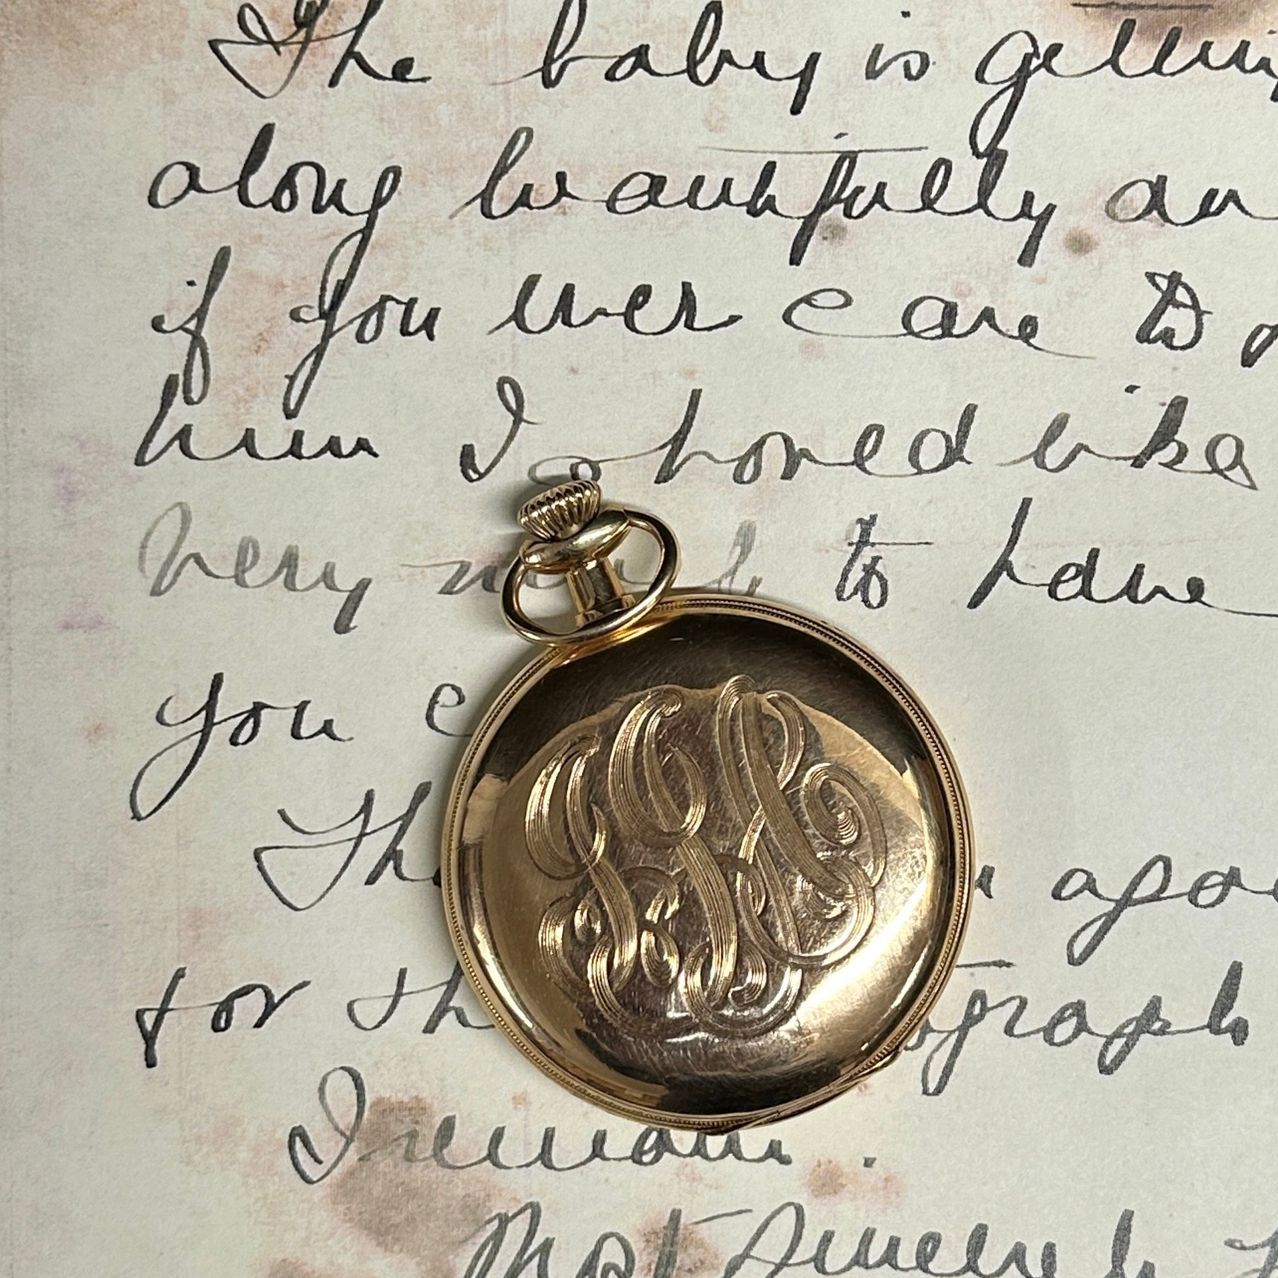 The baby is getting
along beautifully an
if you ever care to
him I should like
very much to have
you c
Th again
for th tograph
I remain.
Most Sincerely